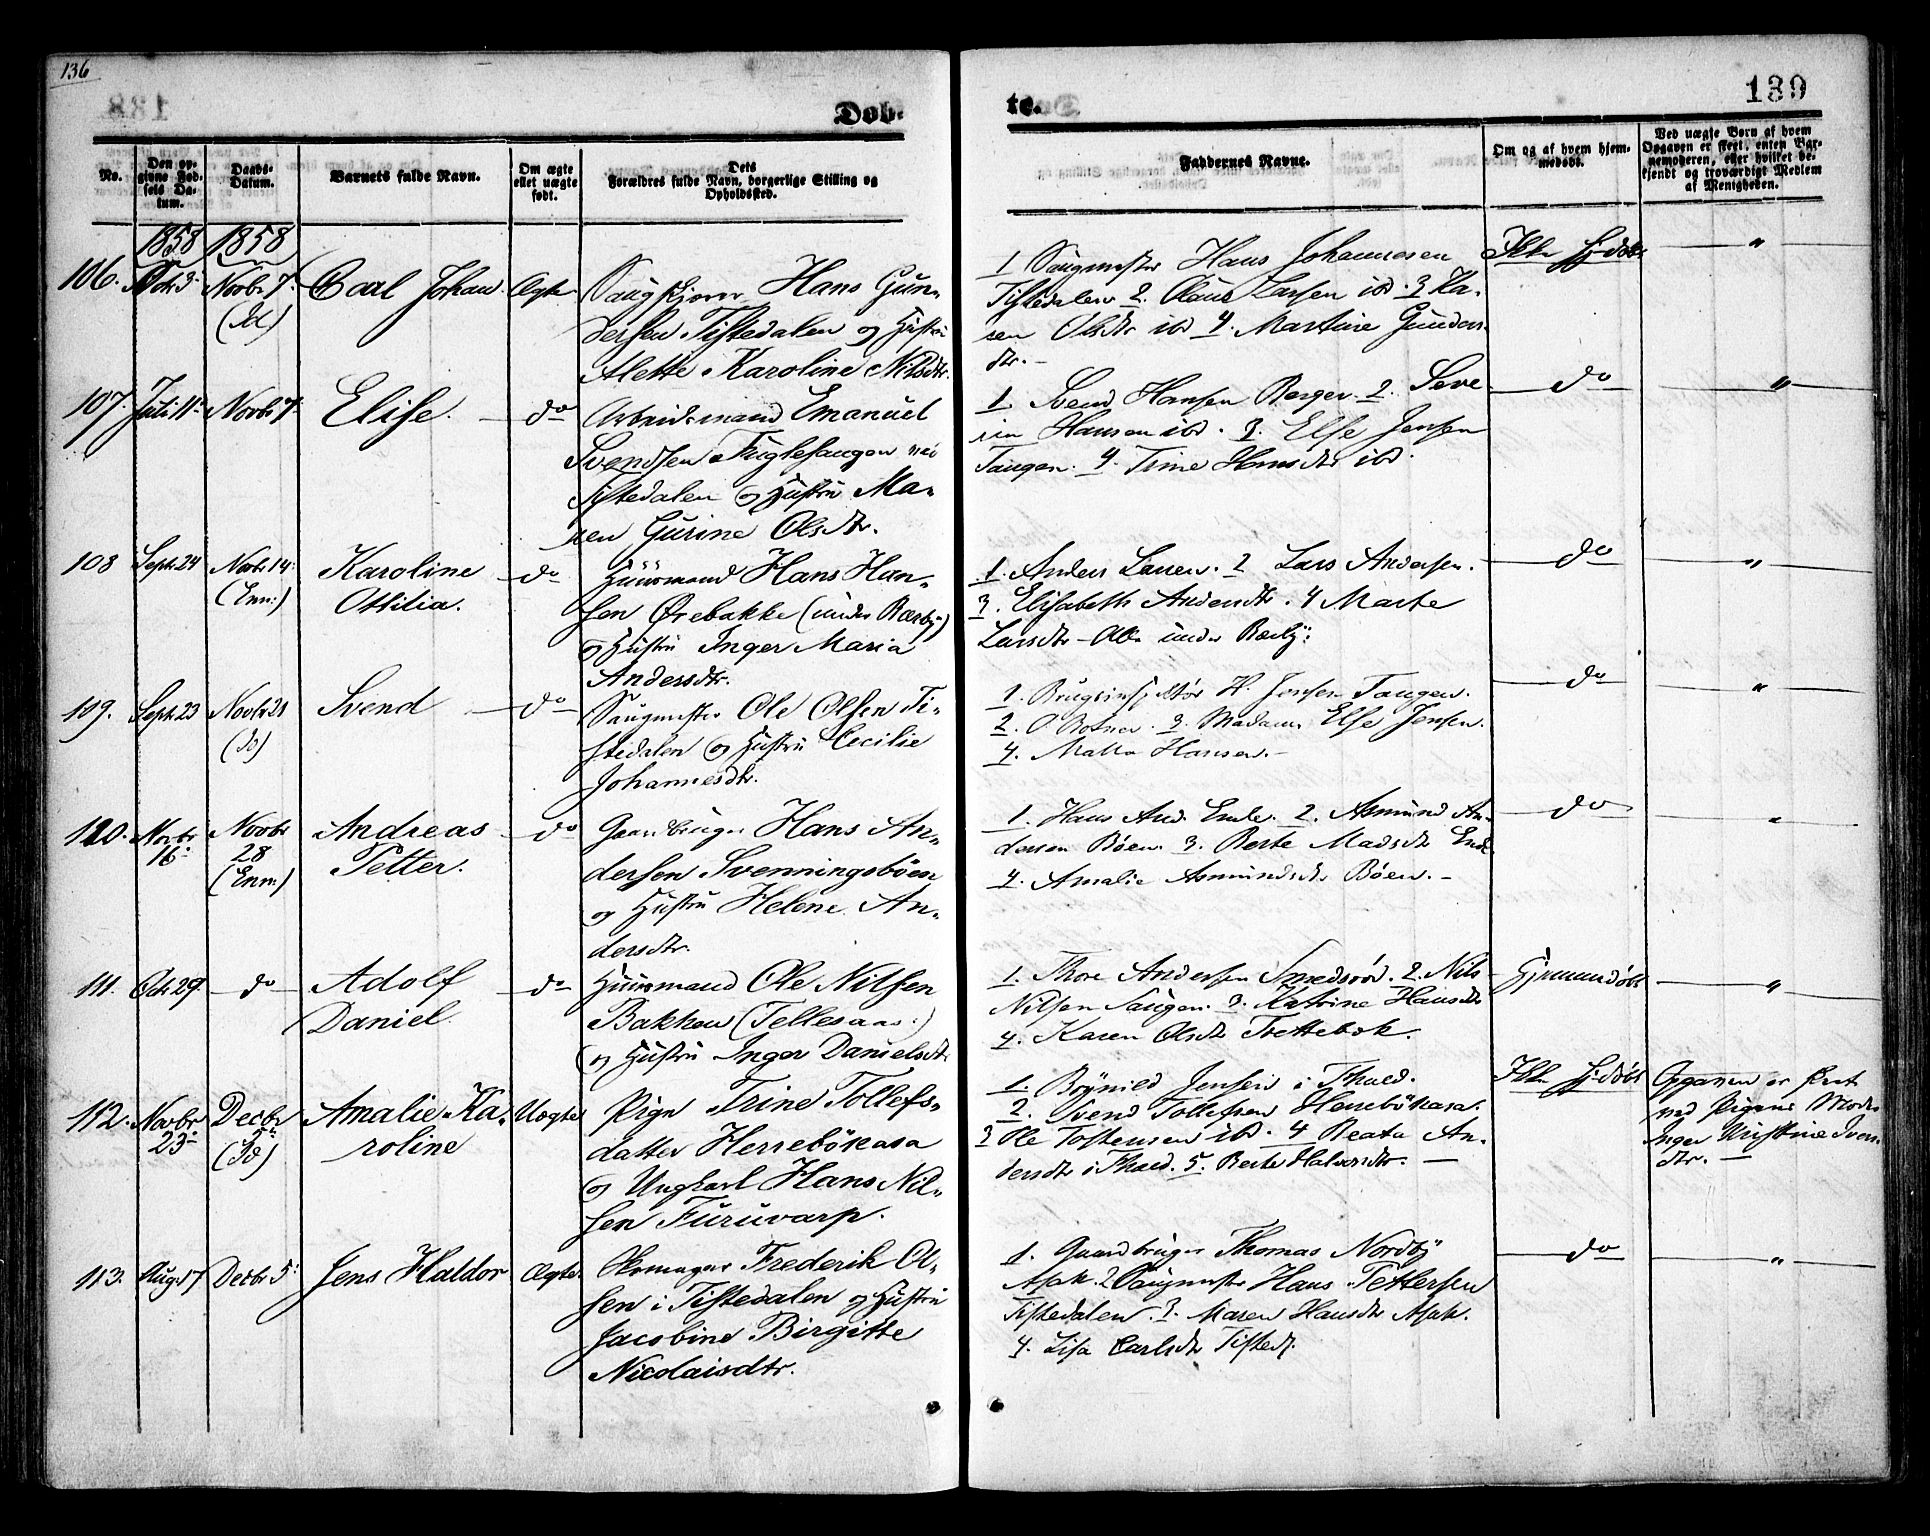 136
139
Døb-
te.
No.
Den op-
givne Fød-
sels Da-
tum.
Daabs-
Datum.
Barnets fulde Navn.
Om ægte
eller uægte
født.
Dets
Forældres fulde Navn, borgerlige Stilling og
Opholdssted.
Faddernes Navne.
Om og af hvem hjem-
medøbt.
Ved uægte Børn af hvem
Opgaven er skeet, enten Bar-
nemoderen, eller hvilket be-
kjendt og troværdigt Medlem
af Menigheden.
1858 1858
106. Octr 3 Novbr 7 Carl Johan Ægte Saugskjærer Hans Gun-
(Id)
dersen Tistedalen og Hustru
Alette Karoline Nilsdtr.
1 Saugmester Hans Johannesen
Tistedalen 2. Olaus Larsen ibd. 3 Ka-
ren Olsdtr ibd 4. Martine Gunders-
dtr. -
Ikke hj-døbt "
107. Juli 11 Novbr 7 Elise. do Arbeidsmand Emanuel
Svendsen Fuglesangen ved
Tistedalen og Hustru Ma-
ren Gurine Olsdtr.
1. Svend Hansen Berger. 2. Seve-
rin Hansen ibd. 3. Else Jensen
Tangen. 4. Trine Hansdtr ibd.
do "
108 Septr 24 Novbr 14 Karoline do Huusmand Hans Han-
(Enn:) Ottilia.
sen Ørebakke (under Bærby)
og Hustru Inger Maria
Andersdtr.
1. Anders Larsen. 2 Lars Andersen.
3. Elisabeth Andersdtr. 4 Marte
Larsdtr - Alle under Bærby:
do "
109. Septr 23 Novbr 21 Svend do Saugmester Ole Olsen Ti-
(do)
stedalen og Hustru Cecilie
Johannesdtr.
1. Brugsinspektør H. Jensen Tangen.
2. O Botner. 3. Madam Else Jensen.
4. Malla Hansen. -
do "
110. Novbr Novbr Andreas do Gaardbruger Hans An-
16 28 Petter.
(Enn:)
dersen Svenningsbøen
og Hustru Helene An-
dersdtr.
1. Hans And. Ende. 2. Asmund An-
dersen Bøen. 3. Berte Madsdtr Ende
4. Amalie Asmundsdtr Bøen. -
do "
111. Octr 29 do Adolf do Huusmand Ole Nilsen
Daniel.
Bakken (Tellesaas:)
og Hustru Inger Danielsdtr
1. Thore Andersen Smedsrød. 2. Nils
Nilsen Saugen. 3. Katrine Hansdtr
4. Karen Olsdtr Trettebøk.
Hjemmdøbt "
112. Novbr Decbr Amalie Ka- Uægte Pige Trine Tollefs-
23 5 roline
(Id)
datter Herrebøkasa
og Ungkarl Hans Nil-
sen Furuvarp.
1. Jensen i Fhald.
2. Svend Tollefsen Herrebøkasa.
3 Ole Tostensen ibd. 4 Beata An-
dersdtr i Fhald. 5. Berte Halvorsdtr. -
Ikke hj-døbt
Opgaven er skeet
ved Pigens Moder
Inger Kristine Svens
dtr. -
113. Aug. 17 Decbr 5 Jens Haldor Ægte Skomager Frederik Ol-
sen i Tistedalen og Hustru
Jacobine Birgitte
Nicolaisdtr.
1. Gaardbruger Thomas Nordby
Asak. 2 Saugmester Hans Pettersen
Tistedalen. 3. Maren Hansdtr Asak.
4. Lisa Carlsdtr Tisted.
do "